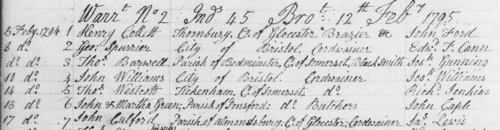 Warr.t No 2 Ind.s 45 Bro.t 12th Feb.y 1795
5 Feby. 1794 1 Henry Collett Thornbury, C.o of Glocester Brazier &c John Ford
8 d.o 2 Geo.e Spurrier City of Bristol Cordwainer Edw.d T. Cann
d.o d.o 3 Tho.s Barwell Parish of Bedminster, C.o of Somerset, Black Smith Jos.h Gunning
10 d.o 4 John Williams City of Bristol Cordwainer Jos.h Williams
14 d.o 5 Tho.s Westcott Tickenham, C.o of Somerset, d.o Rich.d Jenkins
15 d.o 6 John & Martha Green, Parish of d.o Butchers John Caple
17 d.o 7 John Culford Parish of Almondsbury, C.o of Glocester; Cordwainer Ja.s Lewis